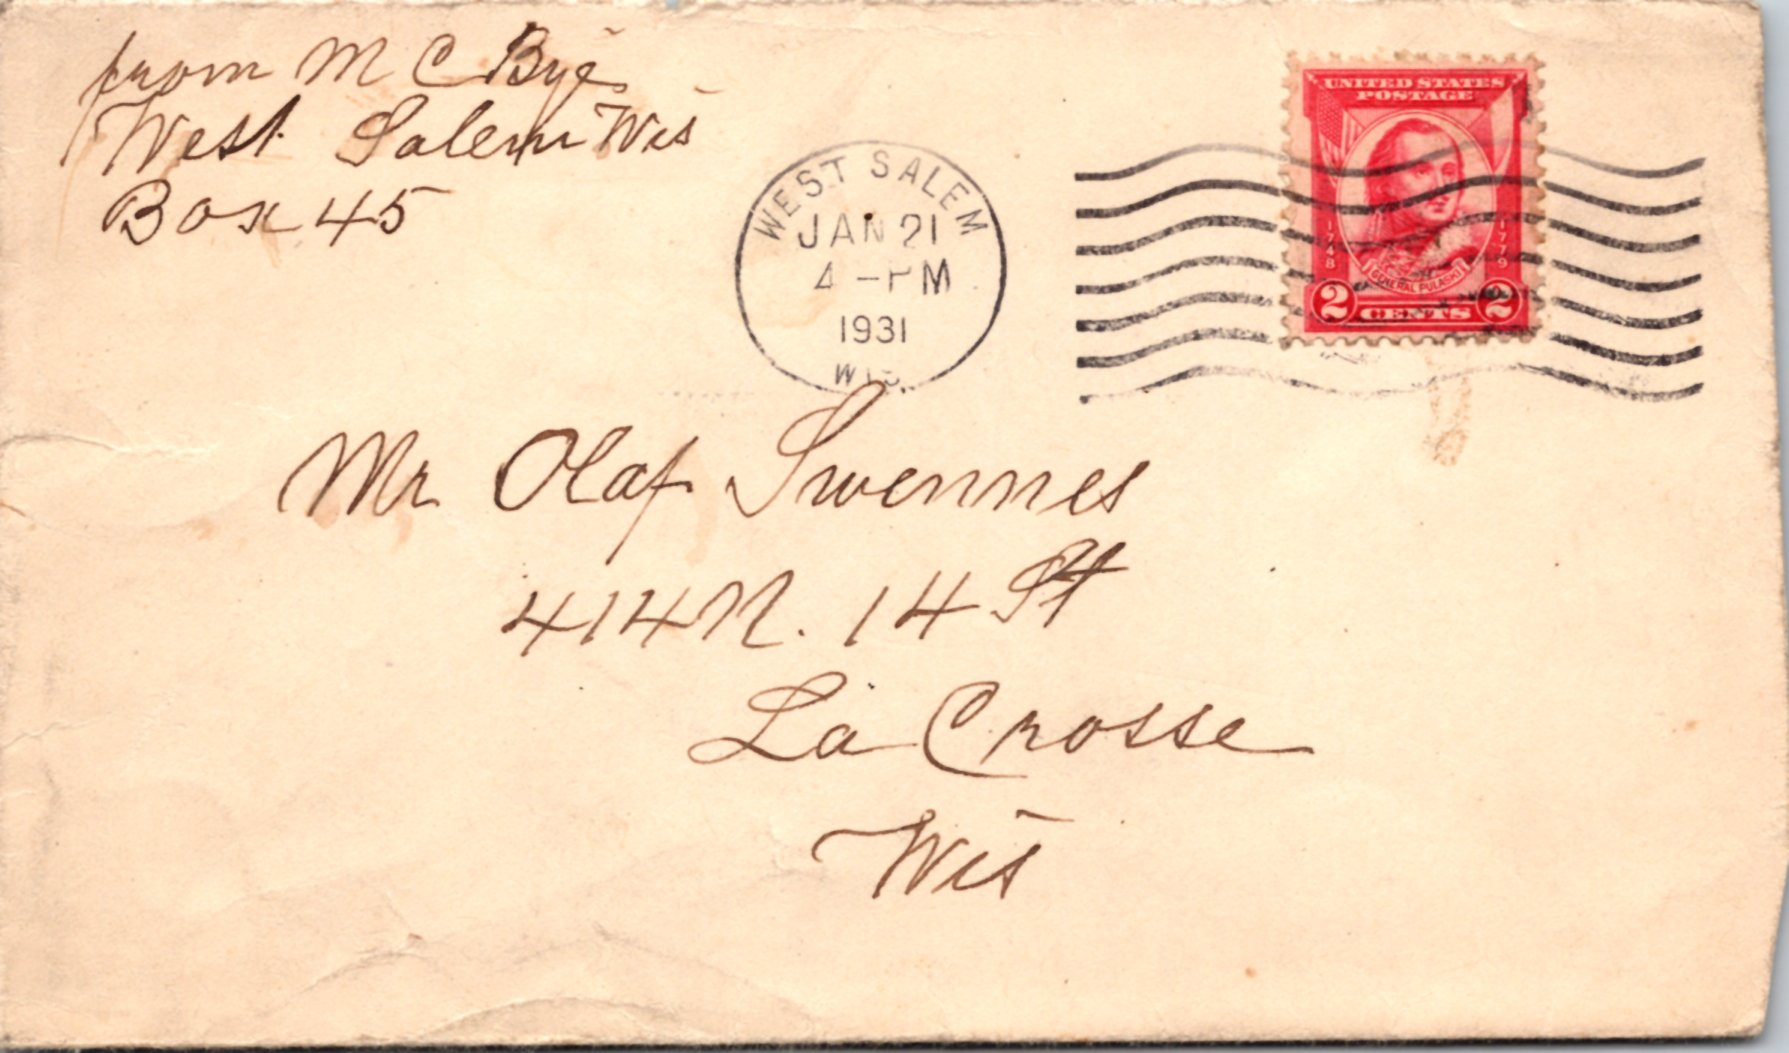 from M C Bye
West Salem Wis
Box 45
WEST SALEM
JAN 21
4 - PM
1931
WIS.
UNITED STATES
POSTAGE
1748
1779
GENERAL PULASKI
2 CENTS 2
Mr Olaf Swennes
414 N. 14 St
La Crosse
Wis